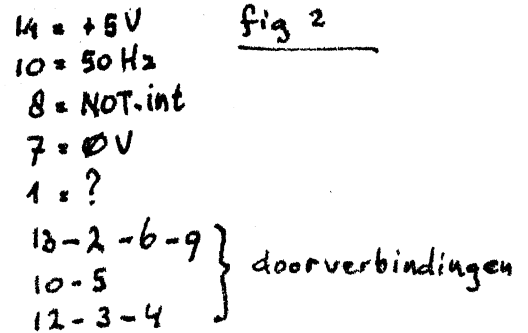 fig 2
14 = +5V
10 = 50 Hz
8 = NOT.int
7 = ØV
1 = ?
13-2-6-9
10-5
12-3-4
doorverbindingen